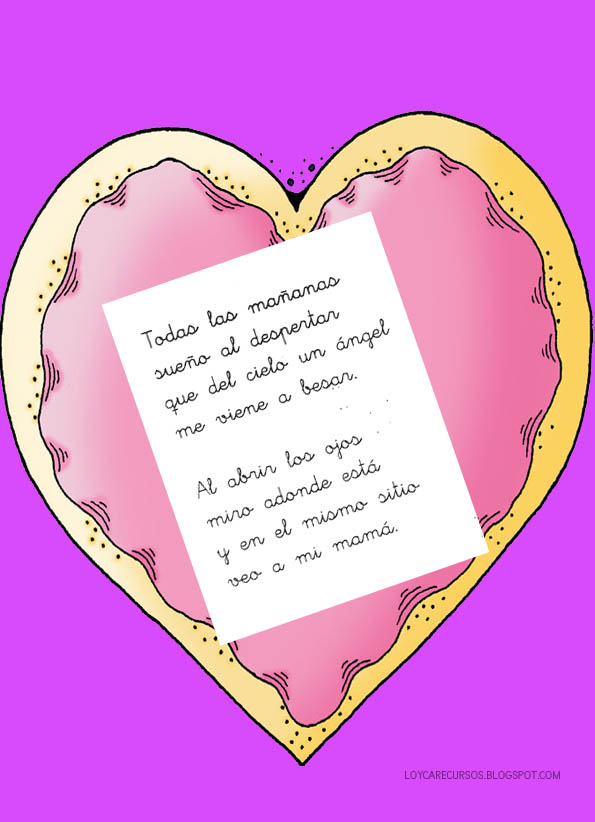 Todas las mañanas
sueño al despertar
que del cielo un ángel
me viene a besar.
Al abrir los ojos
miro adonde está
y en el mismo sitio
veo a mi mamá.
LOYCARECURSOS.BLOGSPOT.COM